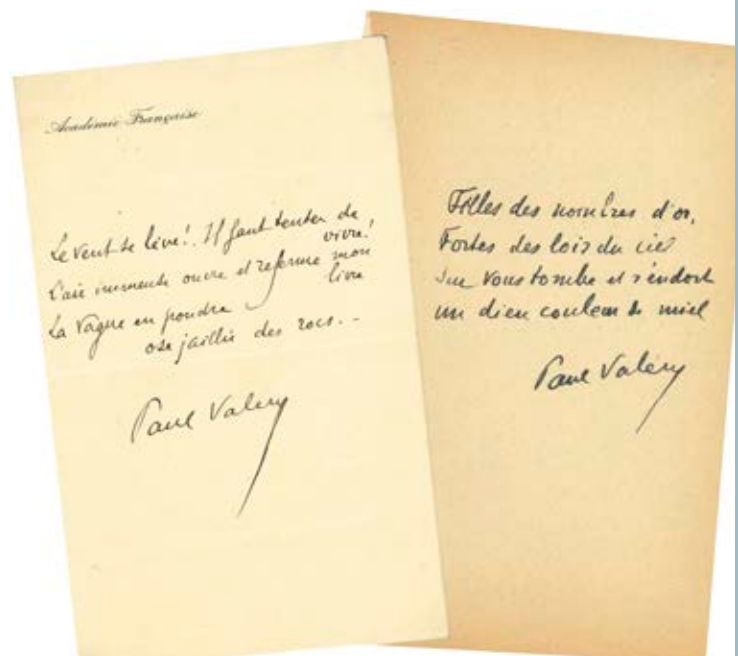 Académie Française
Le vent se lève!. Il faut tenter de
vivre!
L'air immense ouvre et referme mon
livre
La Vague en poudre
ose jaillir des rocs. -
Paul Valéry
Filles des nombres d'or,
Fortes des lois du ciel
Sur Vous tombe et s'endort
un dieu couleur de miel
Paul Valéry